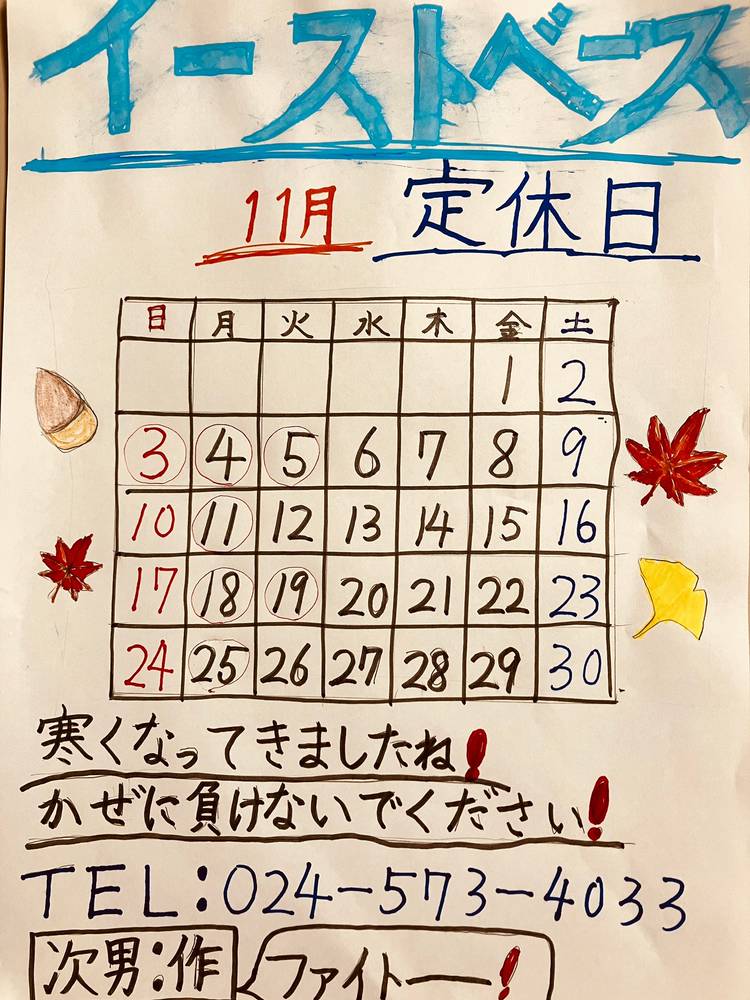 イーストベース
11月 定休日
日 月 火 水 木 金 土
1 2
3 4 5 6 7 8 9
10 11 12 13 14 15 16
17 18 19 20 21 22 23
24 25 26 27 28 29 30
寒くなってきましたね!
かぜに負けないでください!
TEL:024-573-4033
次男:作 ファイトー!